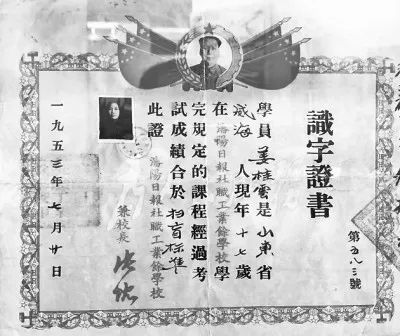 識字證書
第五八三號
學員姜桂雲是山東省
威海人現年十七歲
在瀋陽日報社職工業餘學校學
完規定的課程經過考
試成績合於掃盲标準
此證
瀋陽日報社職工業餘學校
兼校長
一九五三年七月廿日